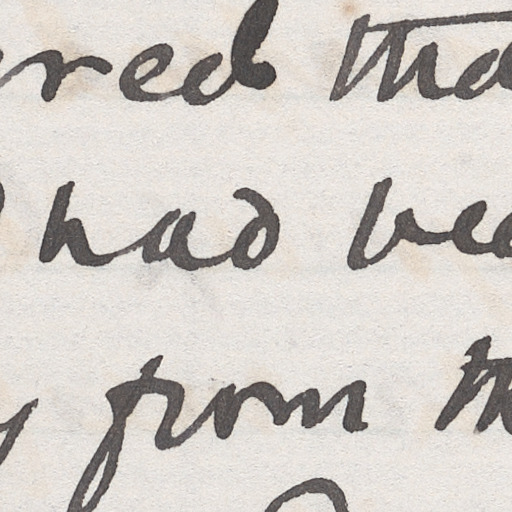 ered tha
had bee
y from th